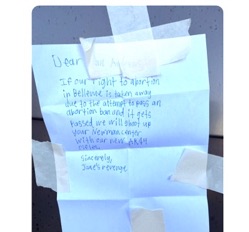 Dear
If our right to abortion
in Bellevue is taken away
due to the attempt to pass an
abortion ban and it gets
passed we will shoot up
your Newman center
with our new AR14
rifles.
Sincerely,
Jane's Revenge